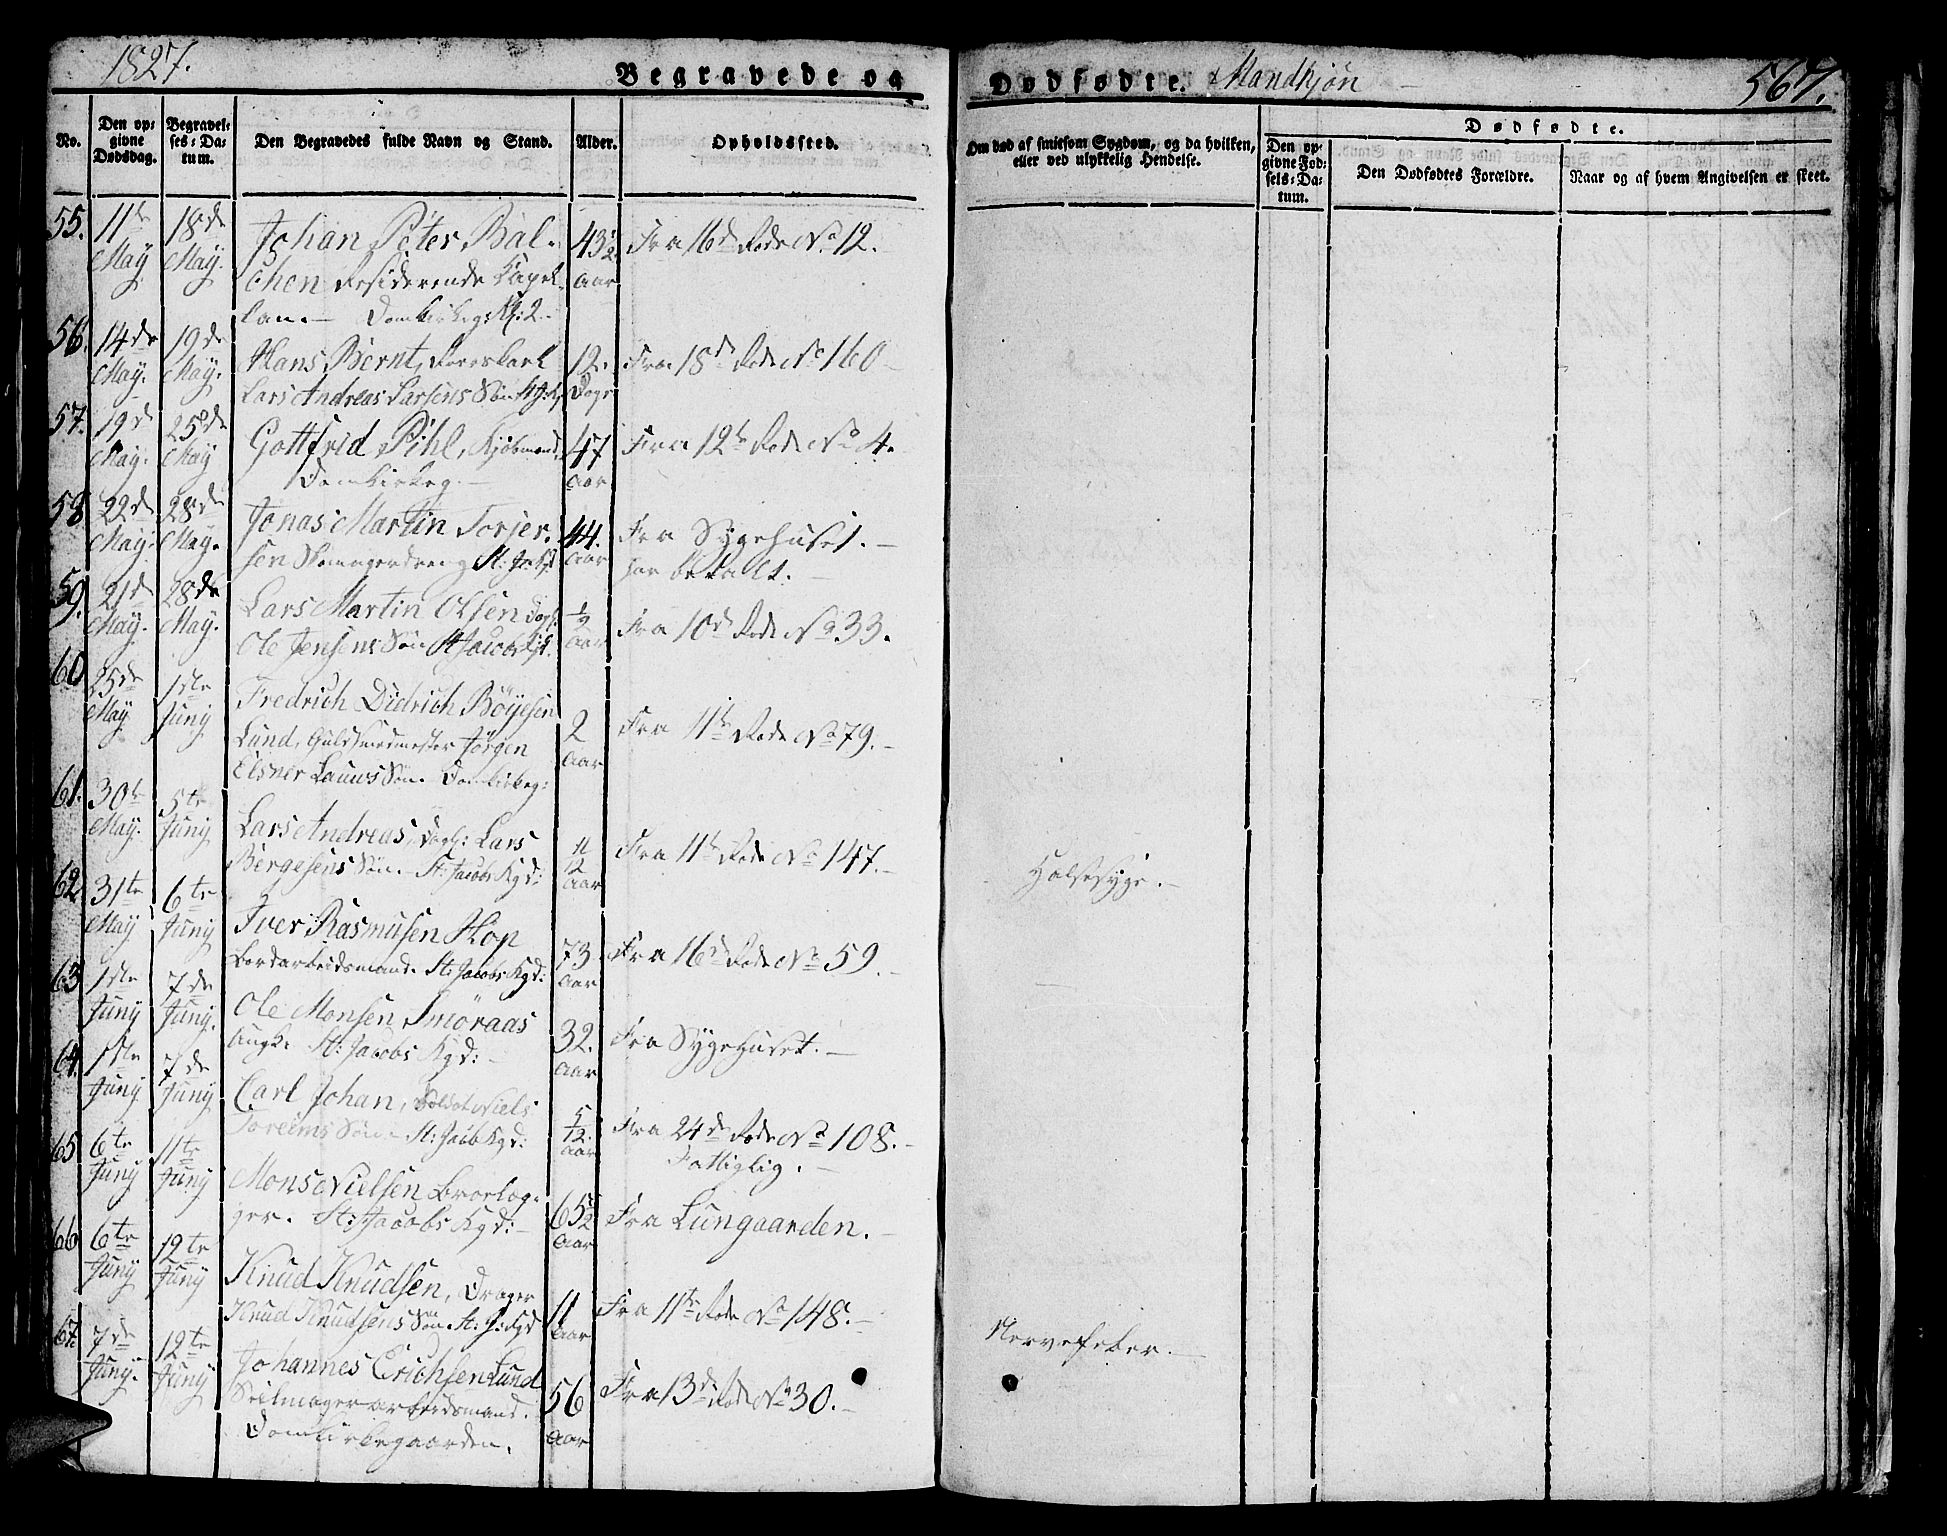 1827.
Begravede og
Dødfødte. Mandkjøn
567.
No.
Den opgivne Dødsdag.
Begravelses-Datum.
Den Begravedes fulde Navn og Stand.
Alder.
Opholdssted.
Om død af smitsom Sygdom, og da hvilken, eller ved ulykkelig Hendelse.
Dødfødte.
Den opgivne Fødsels-Datum.
Den Dødfødtes Forældre.
Naar og af hvem Angivelsen er skeet.
55. 11te May 18de May. Johan Peter Bal-
chen Residerende Kapel-
lan.— Domkirkeg: Kl: 2.
43½ Aar
Fra 16d Rode No 12.
56. 14de May. 19de May. Hans Bernt,
Lars Andreas Larsens Søn St J: Kg
12. Dage
Fra 18d Rode No 160
57. 19d May. 25de May Gottfrid Pihl, Kjøbmand,
Domkirkeg.—
47 Aar
Fra 12te Rode No 4.
58 22d May. 28de May. Jonas Martin Torjer-
sen Skomagerdreng St: Ja: Kg
44. Aar
Fra Sygehuset.—
har betalt.—
59. 21d May. 28de May. Lars Martin Olsen Dagl:
Ole Jensens Søn St Jacobs Kg.
½ Aar
Fra 10d Rode No 33.
60 25de May 1ste Juny Fredrich Didrich Böyesen
Lund, Guldsmedmester Jörgen
Elsner Lauws Søn. Domkirkeg:
2 Aar
Fra 11te Rode No 79.—
61. 30te May. 5te Juny Lars Andreas, Dagl: Lars
Bergesens Søn. St: Jacobs Kgd:
11/12 Aar
Fra 11te Rode No 147.—
Halsesyge.—
62 31te May 6te Juny Iver Rasmusen Hop
Bordarbeidsmand. St: Jacobs Kgd:
73 Aar
Fra 16d Rode No 59.
63 1ste Juny 7de Juny. Ole Monsen Smöraas
Ungk. St: Jacobs Kgd:
32. Aar
Fra Sygehuset.—
64. 1ste Juny 7de Juny Carl Johan, Soldat Niels
Toreims Søn St: Jacob Kgd:
5/12. Aar
Fra 24de Rode No 108.—
Fattiglig.—
65 6te Juny 11te Juny Mons Nielsen Broelæg-
ger. St: Jacobs Kgd:—
65½ Aar
Fra Lungaarden.—
66 6te Juny 12te Juny Knud Knudsen, Drager
Knud Knudsens Søn St: J: Kgd
11 Aar
Fra 11te Rode No 148.—
Nervefeber.—
67. 7de Juny. 12te Juny Johannes Erichsen Lund
Seilmagerarbeidsmand.
Domkirkegaarden.
56 Aar
Fra 13de Rode No 30.—